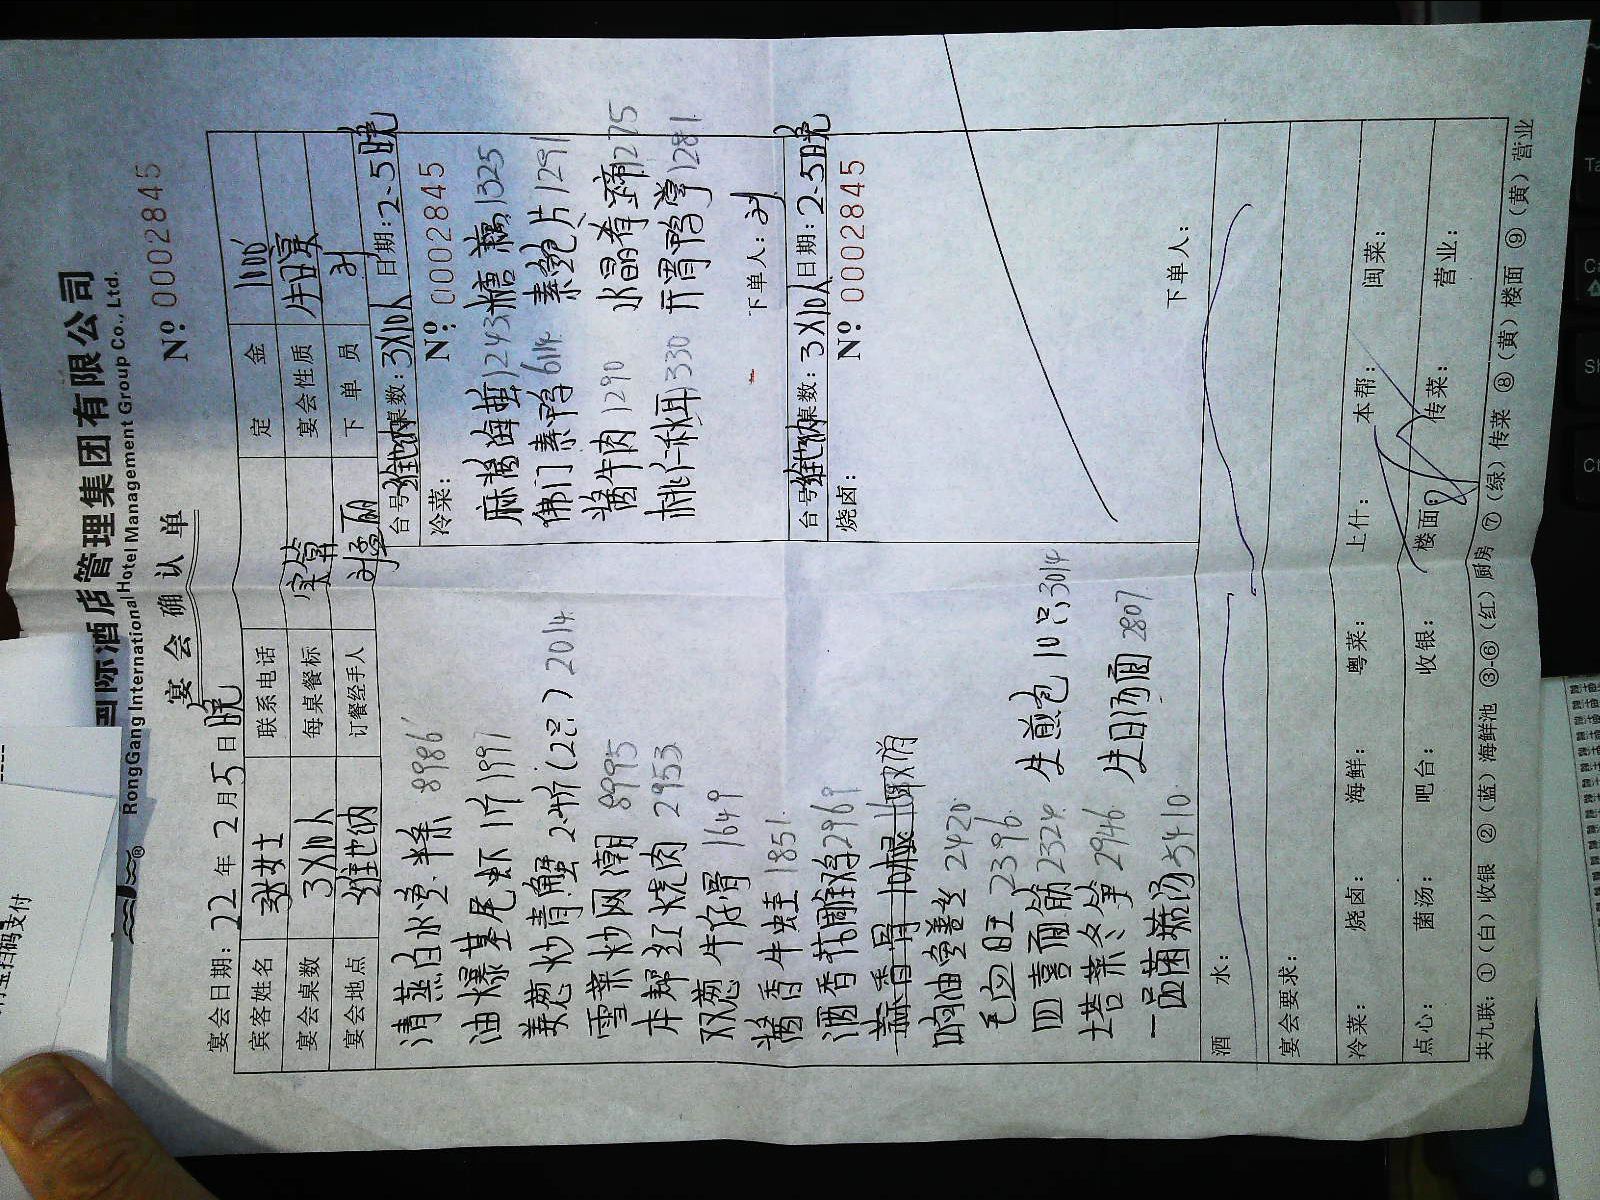 国际酒店管理集团有限公司
RongGang International Hotel Management Group Co., Ltd.
宴会确认单
№ 0002845
宴会日期: 22年2月5日晚
宾客姓名 张女士 联系电话 定金
宴会桌数 3X10人 每桌餐标 实算 宴会性质 生日宴
宴会地点 维也纳 订餐经手人 下单员 孙
清蒸白水鱼半条 8986
油爆基尾虾1斤 1997
姜葱炒青蟹2.4斤(2只) 2014
雪菜炒网潮 8995
本帮红烧肉 2953
双葱牛仔骨 1649
酱香牛蛙 1851
酒香花雕鸡 2969
蒜香骨10根 取消
响油鳝丝 2420
毛血旺 2396
四喜面筋 2324
塔菜冬笋 2946
一品菌菇汤 5410
生煎包10只 3014
生日汤面 2807
台号: 维也纳 桌数: 3X10人 日期: 2-5晚
冷菜: № 0002845
麻酱海蜇 1243 糖藕 1325
佛门素鸭 6114 素鲍片 1291
酱牛肉 1290 水晶肴蹄 1275
桃仁秋耳 1330 开胃鸭掌 1281
下单人: 孙
台号: 维也纳 桌数: 3X10人 日期: 2-5晚
烧卤: № 0002845
下单人:
酒水:
宴会要求:
冷菜: 烧卤: 海鲜: 粤菜: 上什: 本帮: 闽菜:
点心: 菌汤: 吧台: 收银: 楼面: 传菜: 营业:
共九联: ①(白)收银 ②(蓝)海鲜池 ③-⑥(红)厨房 ⑦(绿)传菜 ⑧(黄)楼面 ⑨(黄)营业
宝扫码支付